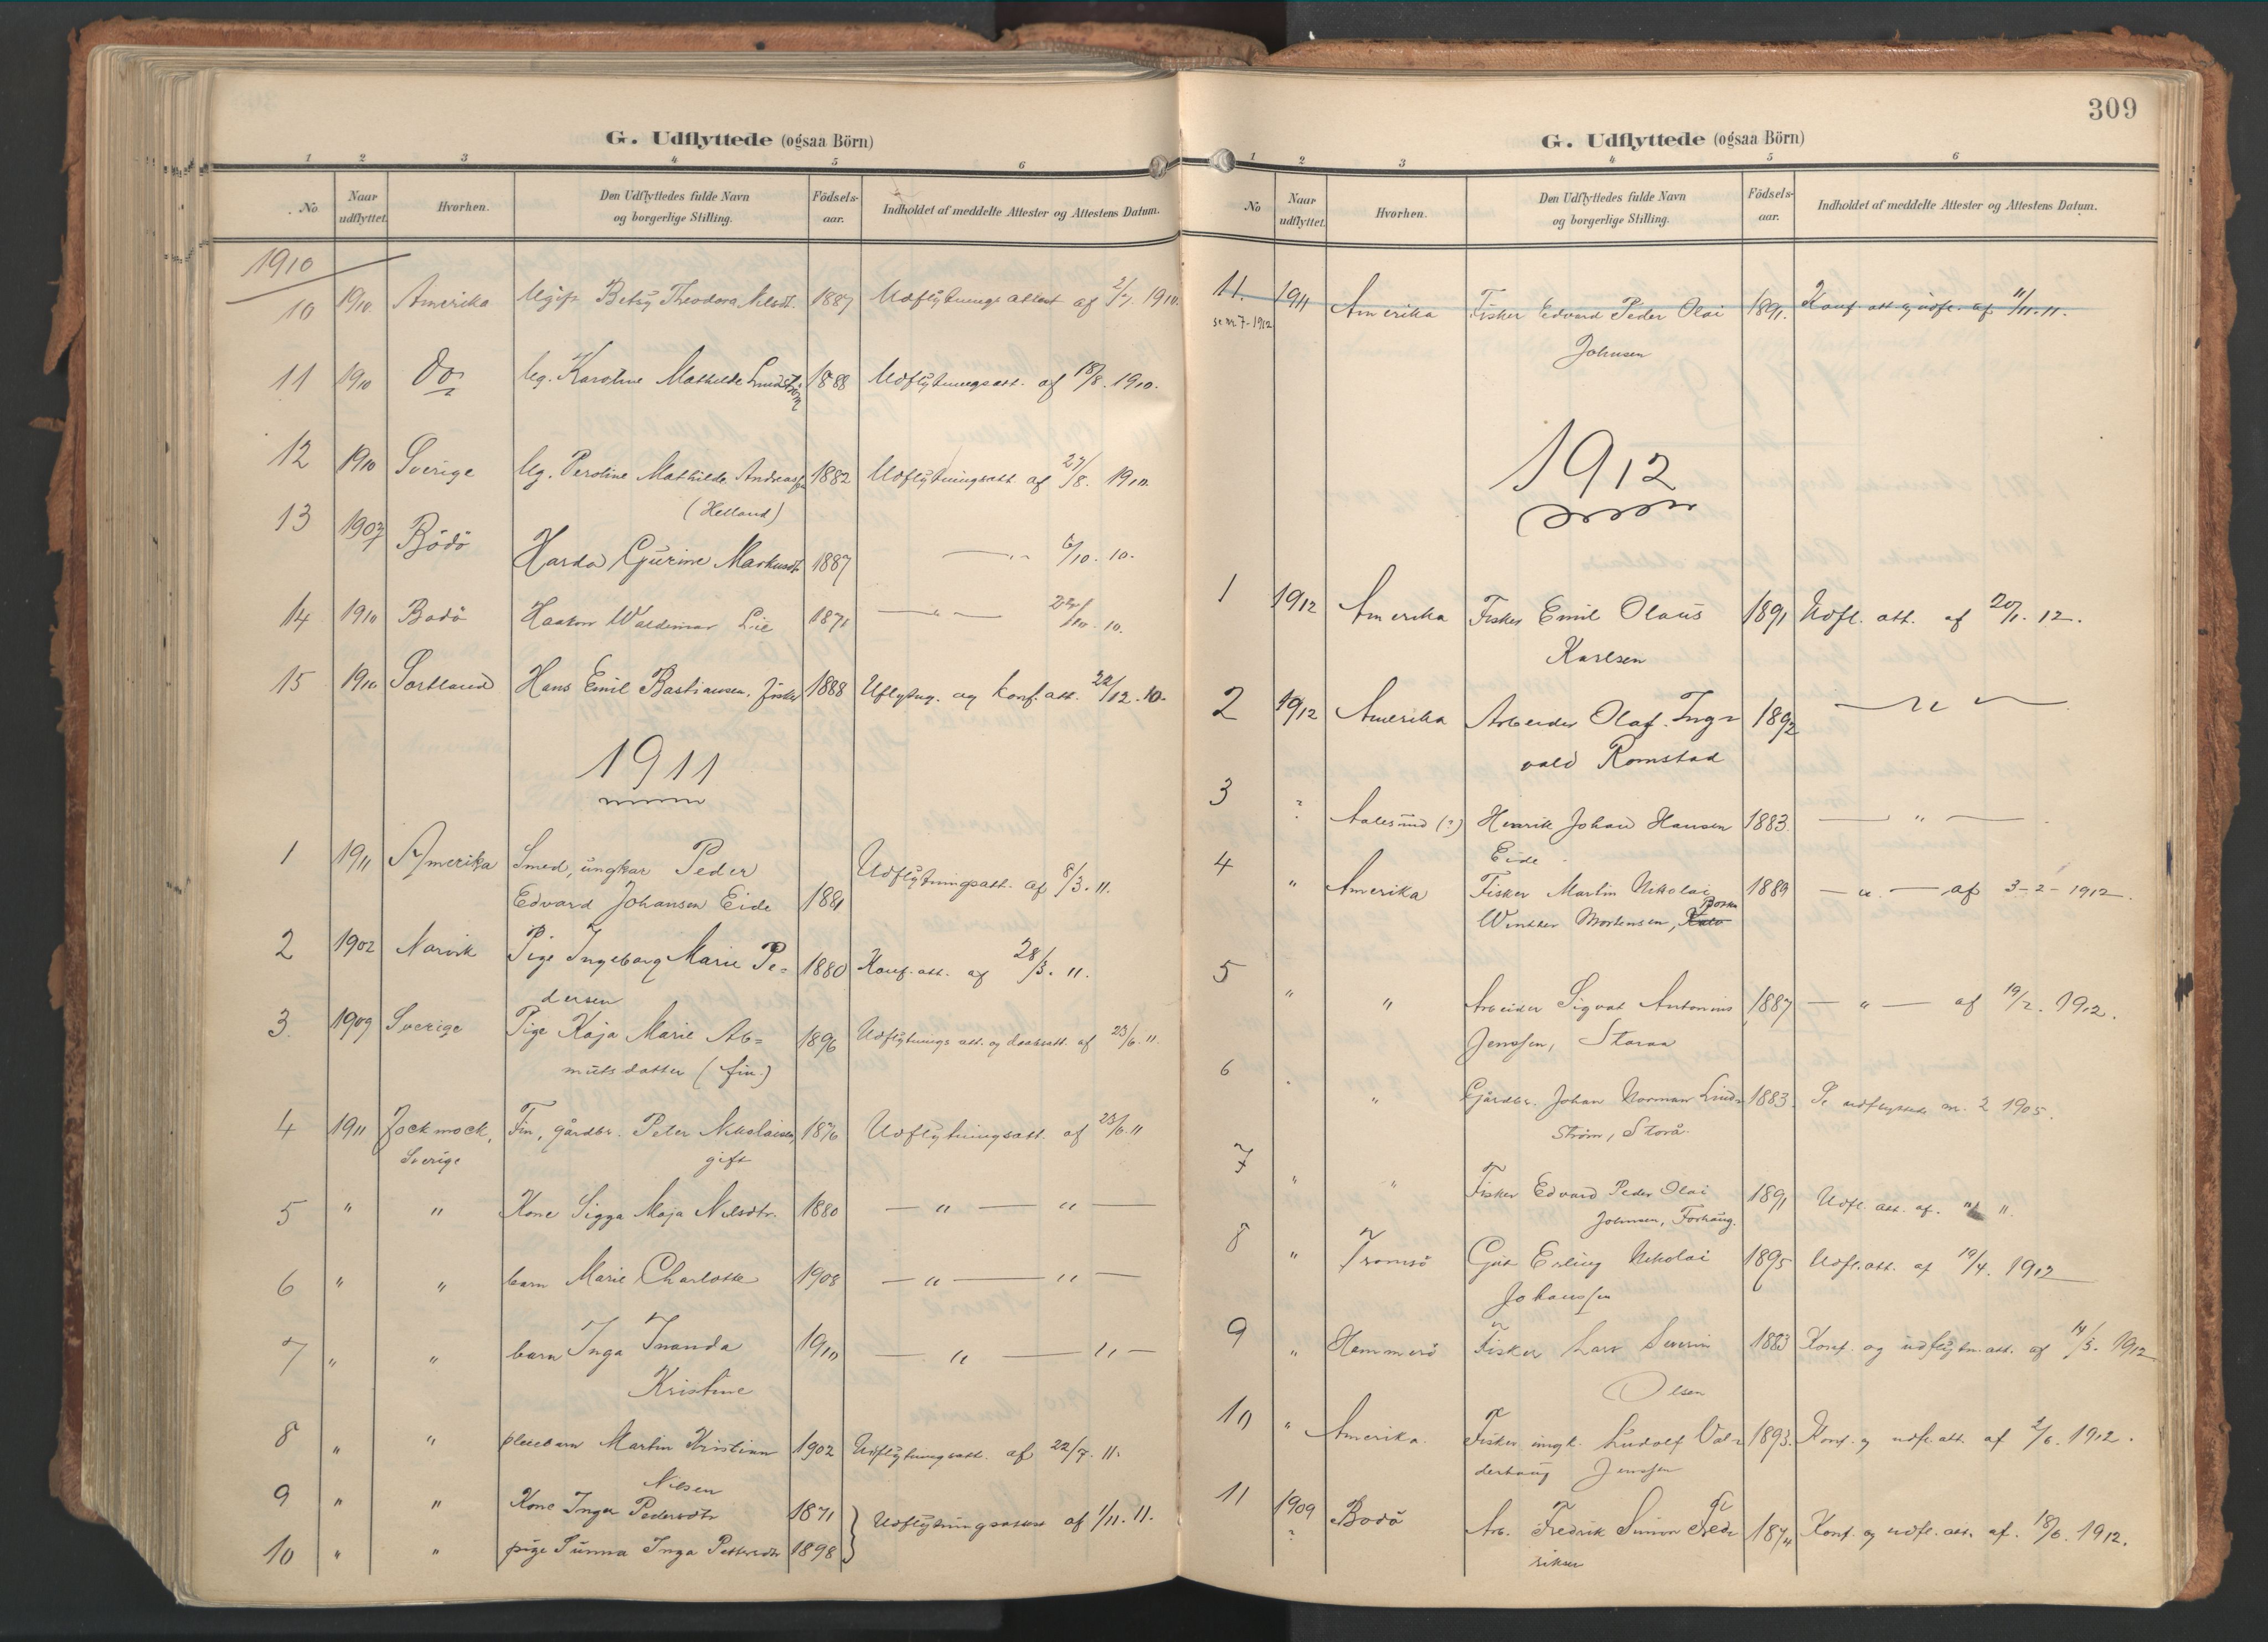 G. Udflyttede (ogsaa Börn)
1 2 3 4 5 6
No Naar udflyttet. Hvorhen. Den Udflyttedes fulde Navn og borgerlige Stilling. Födsels-aar. Indholdet af meddelte Attester og Attestens Datum.
1910
10 1910 Amerika Ugift Betsy Theodora Nilsdt. 1887 Udflytnings attest af 2/7. 1910.
11 1910 Do. Ug. Karoline Mathilde Lindström 1888 Udflytningsatt. af 18/8. 1910.
12 1910 Sverige Ug. Peroline Mathilde Andreas 1882 Udflytningsatt. af 27/8. 1910.
(Helland)
13 1907 Bödö Harda Gjurine Markusdt. 1887 — " — 6/10. 10.
14 1910 Bodö Haakon Waldemar Lie 1871 — " — /10. 10.
15 1910 Sortland Hans Emil Bastiansen. fisker 1888 Uflytng. og konf. att. 22/12. 10.
1911
1 1911 Amerika Smed, ungkar Peder
Edvard Johansen Eide 1881 Udflytningsatt. af 8/3. 11.
2 1902 Narvik Pige Ingeborg Marie Pe=
dersen 1880 Konf. att. af 28/3. 11.
3. 1909 Sverige Pige Kaja Marie Ab=
mutsdatter (fin.) 1896 Udflytnings att. og daabsatt. af 23/6. 11.
4 1911 Jockmock, Fin, gårdbr. Peter Nikolaisen, 1876 Udflytningsatt. af 23/6. 11
Sverige gift
5 " " Kone Sigga Maja Nilsdtr. 1880 — " — " —
6 " " barn Marie Charlotte 1908 — " — " —
7 " " barn Inga Inanda 1910 — " — " —
Kristine
8 " " pleiebarn Martin Kristian 1902 Udflytningsatt. af 22/7. 11.
Nilsen
9 " " Kone Inga Pedersdtr 1871 } Udflytningsattest af 1/11. 11.
10 " " pige Sunna Inga Pettersdtr 1898
309
G. Udflyttede (ogsaa Börn)
1 2 3 4 5 6
No Naar udflyttet. Hvorhen. Den Udflyttedes fulde Navn og borgerlige Stilling. Födsels-aar. Indholdet af meddelte Attester og Attestens Datum.
11. 1911 Amerika Fisker Edvard Peder Olai 1891. Konf. att. og udfl. af 11/11. 11.
se nr 7 - 1912 Johnsen
1912
1 1912 Amerika Fisker Emil Olaus 1891 Udfl. att. af 20/1. 12.
Karlsen
2 1912 Amerika Arbeider Olaf Ing= 1892 — " —
vald Romstad
3 ? Aalesund (?) Henrik Johan Hansen 1883. — " — .
Eide
4 " Amerika Fisker Martin Nikolai 1889 — " — af 3-2-1912.
Winther Mortensen,
5 " " Arbeider Sigvat Antonius 1887 — " — af 19/2. 1912.
Jenssen, Staraa
6 " " Gårdbr. Johan Norman Lind= 1883. Se udflyttede nr. 2 1905.
ström, Storå.
7 " " Fisker Edvard Peder Olai 1891 Udfl. att. af. 11.
Johnsen, Forhaug.
8 " Tromsö Gut Erling Nikolai 1895 Udfl. att. af 19/4. 1912
Johanssen
9 " Hammerö Fisker Lars Severin 1883 Konf. og udflytn. att. af 14/5. 1912
Olsen
10 " Amerika. Fisker ungk. Ludolf Val= 1893. Konf. og udfl. att. af 2/6. 1912.
derhaug Jenssen
11 1909 Bodö Arb. Fredrik Simon Fred= 1874 Konf. og udfl. att. af. 18/6. 1912.
? riksen